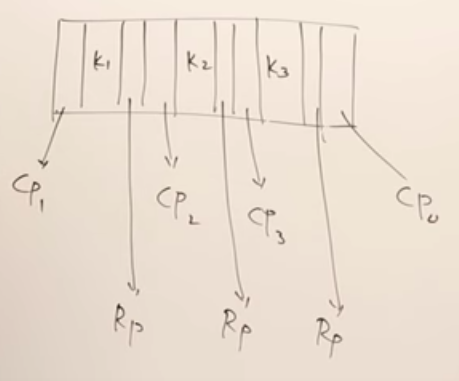 K1 K2 K3
CP1 CP2 CP3
Rp Rp Rp